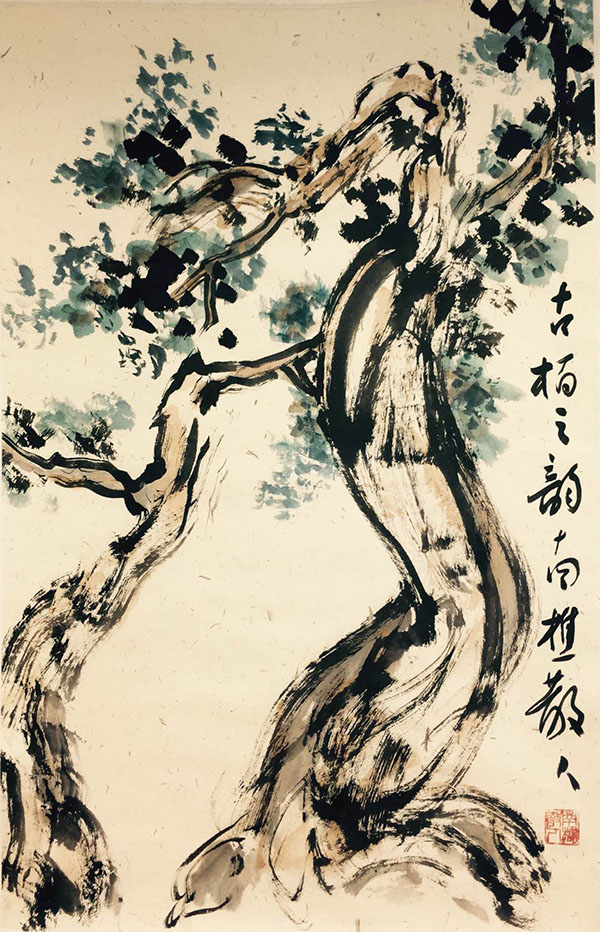 古柏之韵南樵散人